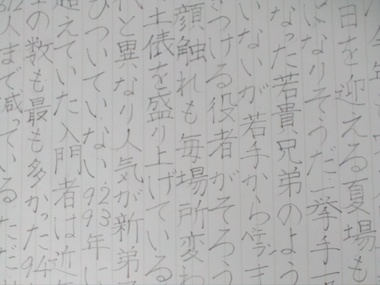 今年
日を迎える夏場も
になりそうだ一挙手一
なった若貴兄弟のよう
いないが若手からベテラン
きつける役者がそろう
顔触れも毎場所変わ
土俵を盛り上げている
と異なり人気が新弟子
びついていない92 93年に
超えていた入門者は近年
の数も最も多かった94
人まで減っているただ